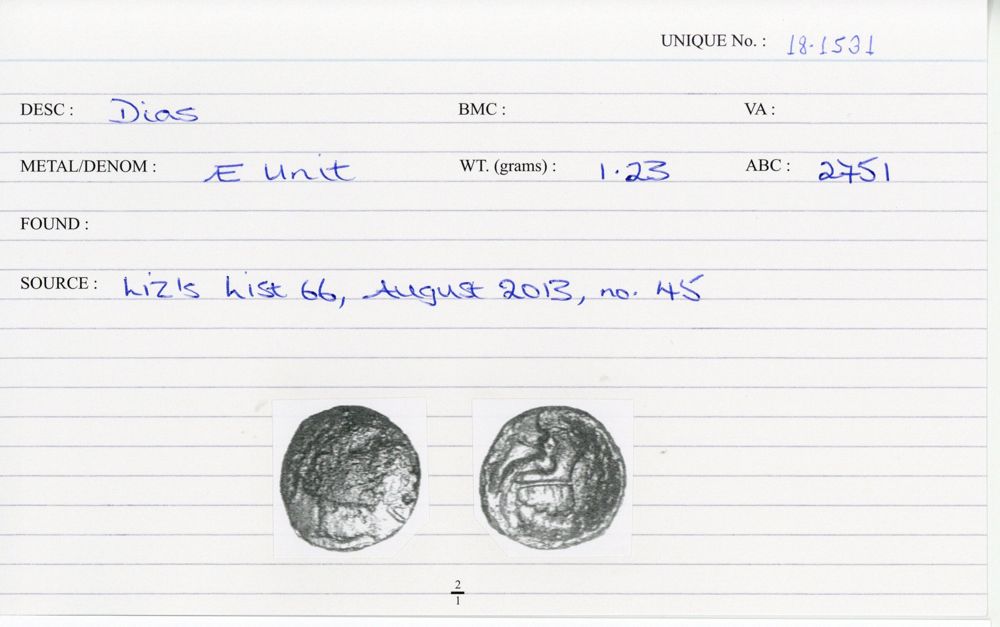 UNIQUE No. : 18.1531
DESC : Dias BMC : VA :
METAL/DENOM : Æ Unit WT. (grams) : 1.23 ABC : 2751
FOUND :
SOURCE : Liz's List 66, August 2013, no. 45
2
1